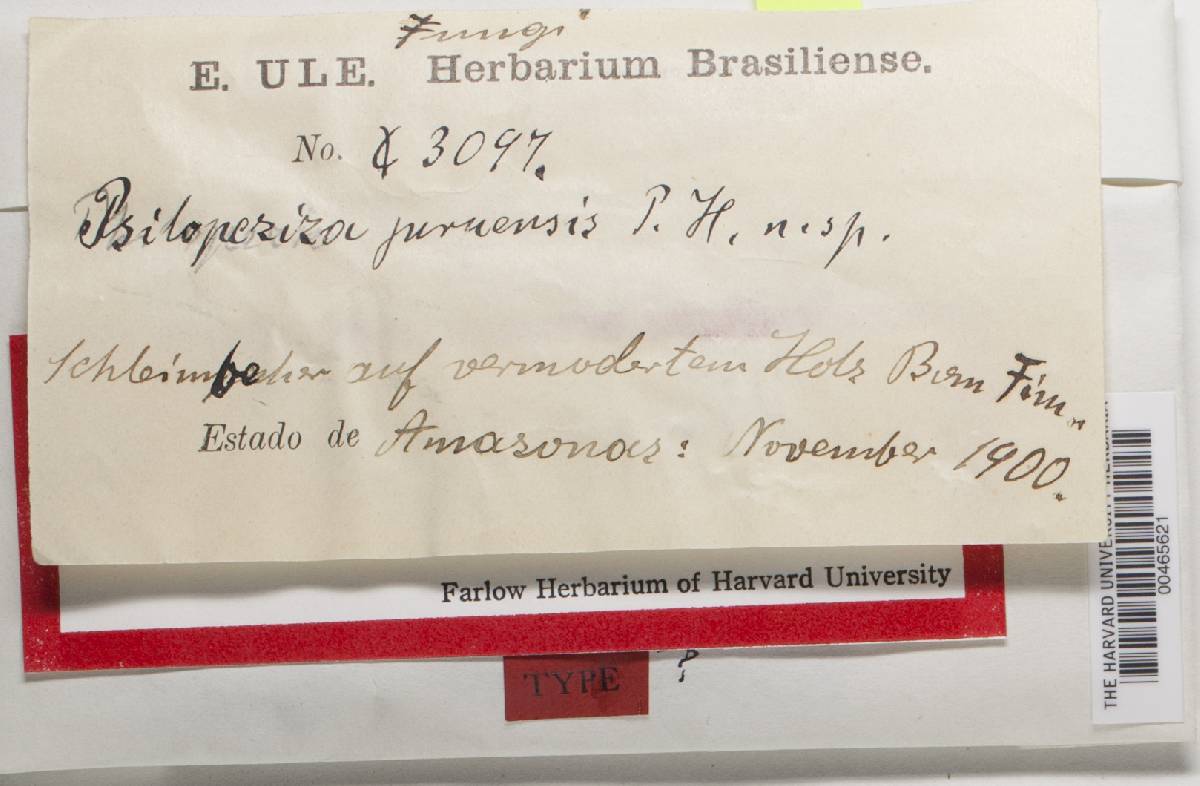 Fungi
E. ULE. Herbarium Brasiliense.
No. 3097.
Psilopeziza juruensis P. H. n. sp.
auf vermodertem Holz Bom Fim
Estado de Amazonas: November 1900.
Farlow Herbarium of Harvard University
TYPE ?
THE HARVARD UNIVERSITY HERBARIA
00465621